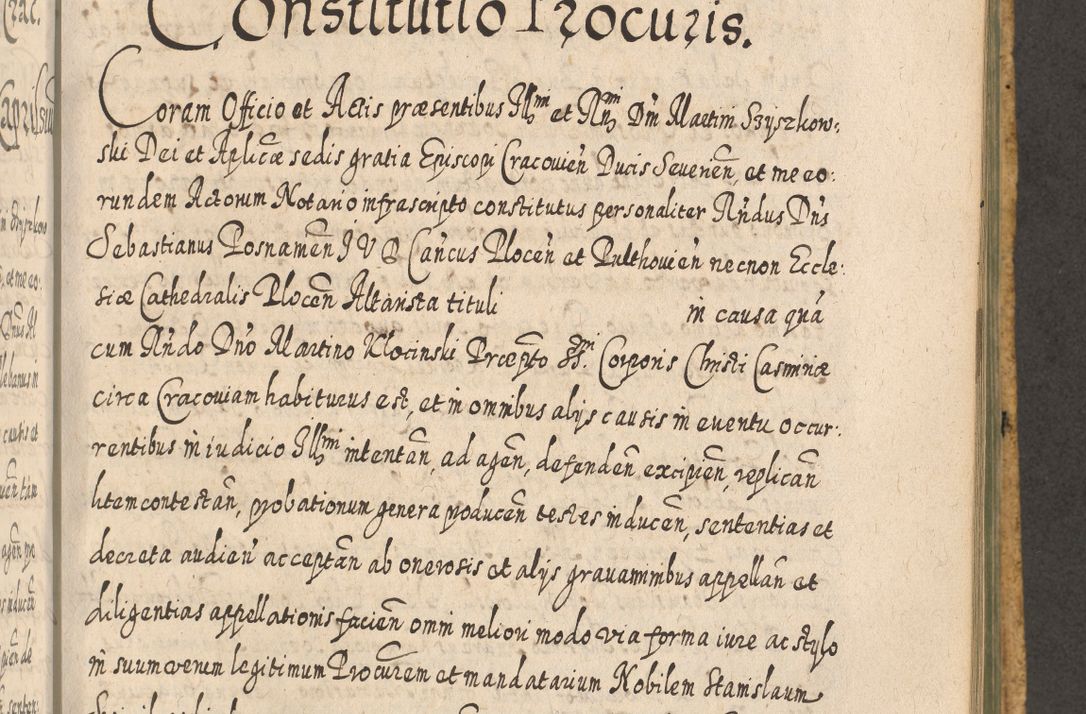 Constitutio Procuris.
Coram Officio et Actis præsentibus Illmi et Rndmi Dni Martini Szyszkow:
ski Dei et Aplicæ sedis gratia Episcopi Cracovien Ducis Severien, et me eo:
rundem Actorum Notario infrascripto constitutus personaliter Rndus Dns
Sebastianus Posnamen I V D Cancus Plocen et Pulthovien necnon Eccle:
siæ Cathedralis Plocen Altarista tituli in causa qua
cum Rndo Dno Martino Klocinski Præpto SSmi. Corporis Christi Casimiriæ
circa Cracoviam habiturus est, et in omnibus alijs causis in eventu occur:
rentibus in iudicio Illmi intentan, ad agen, defenden excipien, replican
litem contestan, probationum genera producen testes inducen, sententias et
decreta audien acceptan ab onerosis et alijs gravaminibus appellan et
diligentias appellationis facien omni meliori modo via forma iure ac stylo
in suum verum legitimum Procurem et mandatarium Nobilem Stanislaum